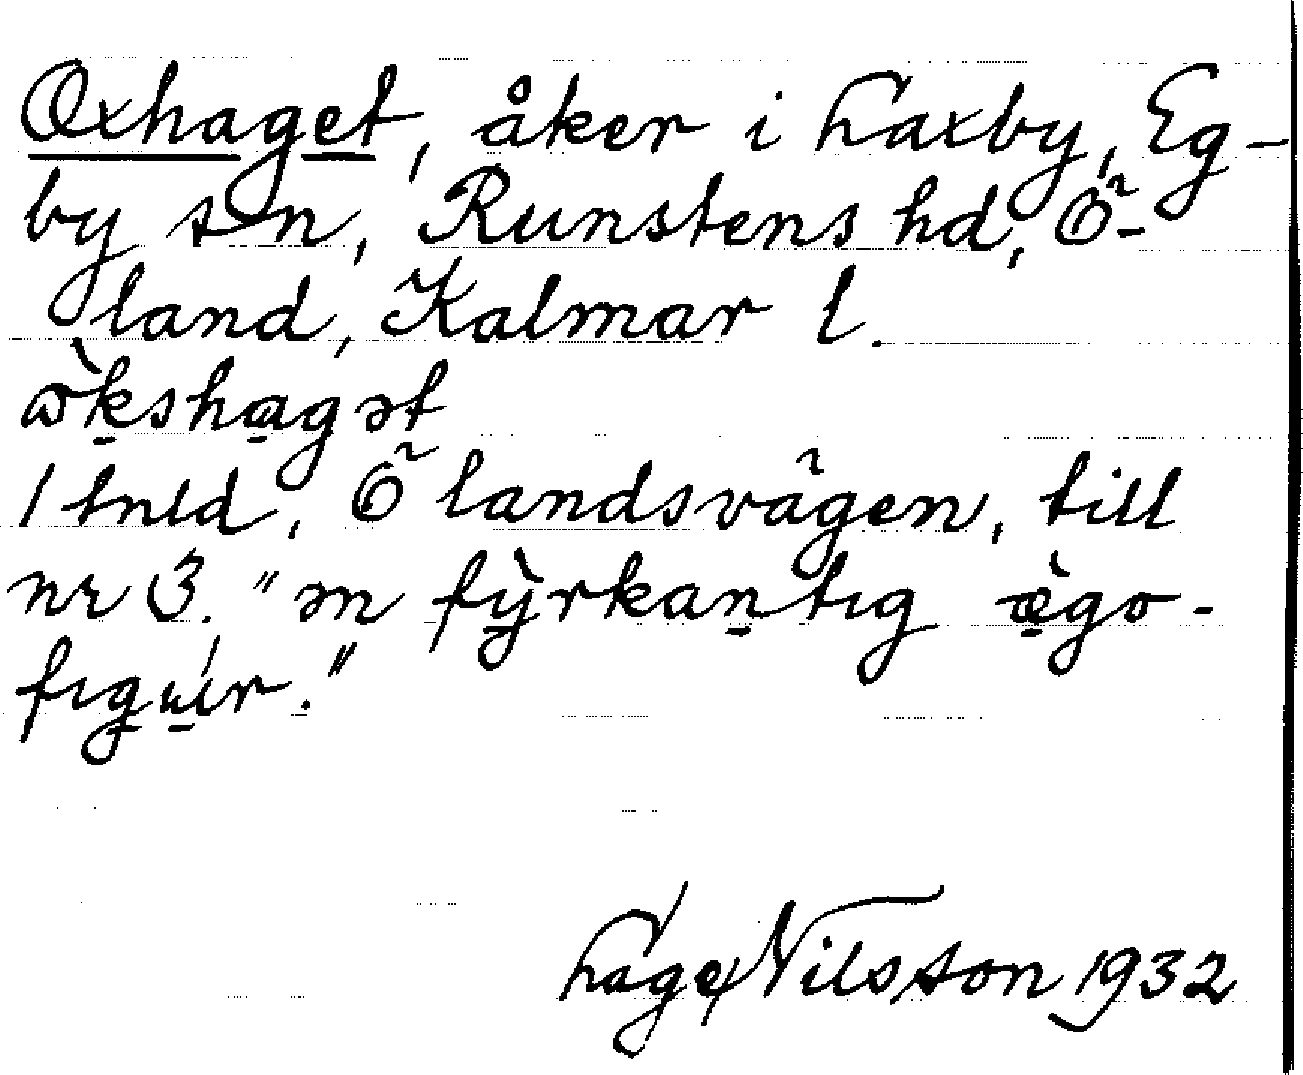 Oxhaget, åker i Laxby, Eg-
by sn, Runstens hd, Ö-
land, Kalmar l.
ɷ̀kshagət
1 tnld, Ö landsvägen, till
nr 3. "ən fỳrkantıg æ̀go-
fıgúr."
Nilsson 1932